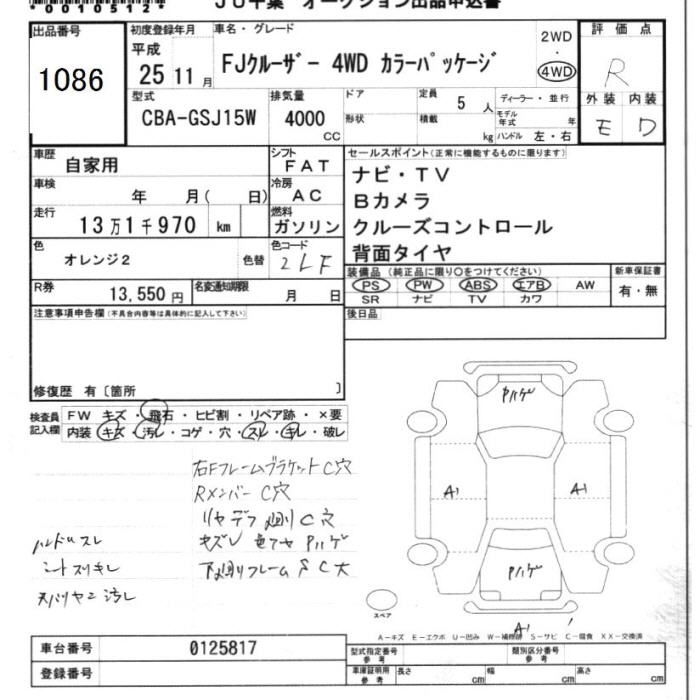 *00105120*
JU千葉 オークション出品申込書
出品番号
1086
初度登録年月
平成
25 11月
車名・グレード
FJクルーザー 4WD カラーパッケージ
2WD
・
4WD
評価点
R
外装 内装
E D
型式
CBA-GSJ15W
排気量
4000
CC
ドア
形状
定員
5人
積載
kg
ディーラー・並行
モデル年式 年
ハンドル 左・右
車歴
自家用
シフト
FAT
車検
年 月( 日)
冷房
AC
走行
13万1千970 km
燃料
ガソリン
色
オレンジ2
色替
色コード
2LF
R券
13,550円
名変通知期限
月 日
セールスポイント(正常に機能するものに限ります)
ナビ・TV
Bカメラ
クルーズコントロール
背面タイヤ
装備品(純正品に限り○をつけてください)
PS PW ABS エアB AW
SR ナビ TV カワ
新車保証書
有・無
後日品
注意事項申告欄(不具合内容等は具体的に記入して下さい)
修復歴 有〔箇所 〕
検査員記入欄
FW キズ・飛石・ヒビ割・リペア跡・×要
内装 キズ・汚レ・コゲ・穴・スレ・キレ・破レ
右Fフレームブラケット C穴
Rメンバー C穴
リヤデフ廻り C穴
キズU 色アセ Pハゲ
下廻りフレーム S C大
ハンドルスレ
シートスリキレ
天バリヤニ汚レ
Pハゲ
A1
A1
Pハゲ
A1
スペア
A-キズ E-エクボ U-凹み W-補修跡 S-サビ C-腐食 XX-交換済
車台番号
0125817
登録番号
型式指定番号
参考
類別区分番号
参考
車庫証明用
参考
長さ cm
幅 cm
高さ cm